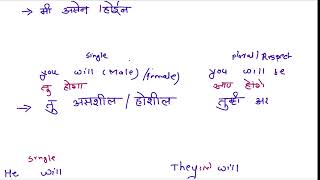 → मी असेन / होईन
single plural / Respect
you will (Male) / female) you will be
तु होगा आप होंगे
→ तु असशील / होशील तुम्ही अस
single
He will They will